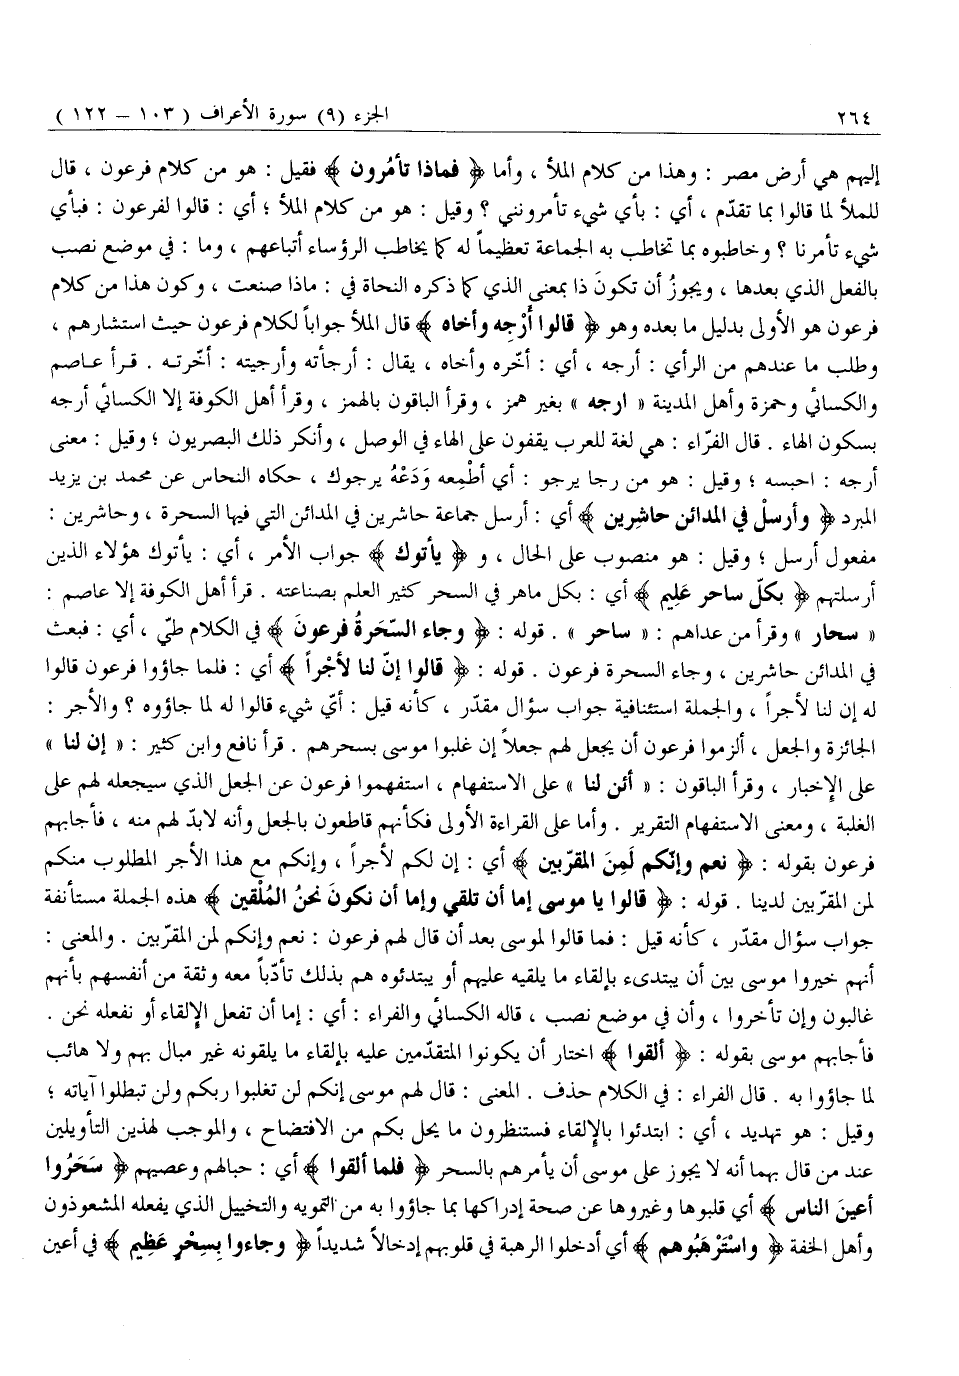 ٢٦٤ الجزء (٩) سورة الأعراف ( ١٠٣ – ١٢٢ )
إليهم هي أرض مصر : وهذا من كلام الملأ ، وأما ﴿ فماذا تأمُرون ﴾ فقيل : هو من كلام فرعون ، قال
للملأ لما قالوا بما تقدّم ، أي : بأي شيء تأمرونني ؟ وقيل : هو من كلام الملأ ؛ أي : قالوا لفرعون : فبأي
شيء تأمرنا ؟ وخاطبوه بما تخاطب به الجماعة تعظيماً له كما يخاطب الرؤساء أتباعهم ، وما : في موضع نصب
بالفعل الذي بعدها ، ويجوزُ أن تكونَ ذا بمعنى الذي كما ذكره النحاة في : ماذا صنعت ، وكون هذا من كلام
فرعون هو الأولى بدليل ما بعده وهو ﴿ قالوا أَرْجِه وأخاه ﴾ قال الملأ جواباً لكلام فرعون حيث استشارهم ،
وطلب ما عندهم من الرأي : أرجه ، أي : أخّره وأخاه ، يقال : أرجأته وأرجيته : أخّرته . قرأ عاصم
والكسائي وحمزة وأهل المدينة « ارجه » بغير همز ، وقرأ الباقون بالهمز ، وقرأ أهل الكوفة إلا الكسائي أرجه
بسكون الهاء . قال الفرّاء : هي لغة للعرب يقفون على الهاء في الوصل ، وأنكر ذلك البصريون ؛ وقيل : معنى
أرجه : احبسه ؛ وقيل : هو من رجا يرجو : أي أطْمِعه وَدَعْهُ يرجوك ، حكاه النحاس عن محمد بن يزيد
المبرد ﴿ وأرسلْ في المدائن حاشِرين ﴾ أي : أرسل جماعة حاشرين في المدائن التي فيها السحرة ، وحاشرين :
مفعول أرسل ؛ وقيل : هو منصوب على الحال ، و ﴿ يأتوك ﴾ جواب الأمر ، أي : يأتوك هؤلاء الذين
أرسلتهم ﴿ بكلّ ساحر عَلِيم ﴾ أي : بكل ماهر في السحر كثير العلم بصناعته . قرأ أهل الكوفة إلا عاصم :
« سحار » وقرأ من عداهم : « ساحر » . قوله : ﴿ وجاء السّحَرةُ فرعونَ ﴾ في الكلام طيّ ، أي : فبعث
في المدائن حاشرين ، وجاء السحرة فرعون . قوله : ﴿ قالوا إنّ لنا لأجْراً ﴾ أي : فلما جاؤوا فرعون قالوا
له إن لنا لأجراً ، والجملة استئنافية جواب سؤال مقدّر ، كأنه قيل : أيّ شيء قالوا له لما جاؤوه ؟ والأجر :
الجائزة والجعل ، ألزموا فرعون أن يجعل لهم جعلاً إن غلبوا موسى بسحرهم . قرأ نافع وابن كثير : « إن لنا »
على الإخبار ، وقرأ الباقون : « أئن لنا » على الاستفهام ، استفهموا فرعون عن الجعل الذي سيجعله لهم على
الغلبة ، ومعنى الاستفهام التقرير . وأما على القراءة الأولى فكأنهم قاطعون بالجعل وأنه لابدّ لهم منه ، فأجابهم
فرعون بقوله : ﴿ نعم وإنّكم لَمِنَ المقرّبين ﴾ أي : إن لكم لأجراً ، وإنكم مع هذا الأجر المطلوب منكم
لمن المقرّبين لدينا . قوله : ﴿ قالوا يا موسى إما أن تلقي وإما أن نكونَ نحنُ المُلْقين ﴾ هذه الجملة مستأنفة
جواب سؤال مقدّر ، كأنه قيل : فما قالوا لموسى بعد أن قال لهم فرعون : نعم وإنكم لمن المقرّبين . والمعنى :
أنهم خيروا موسى بين أن يبتدىء بإلقاء ما يلقيه عليهم أو يبتدئوه هم بذلك تأدّباً معه وثقة من أنفسهم بأنهم
غالبون وإن تأخروا ، وأن في موضع نصب ، قاله الكسائي والفراء : أي : إما أن تفعل الإلقاء أو نفعله نحن .
فأجابهم موسى بقوله : ﴿ ألقوا ﴾ اختار أن يكونوا المتقدّمين عليه بإلقاء ما يلقونه غير مبال بهم ولا هائب
لما جاؤوا به . قال الفراء : في الكلام حذف . المعنى : قال لهم موسى إنكم لن تغلبوا ربكم ولن تبطلوا آياته ؛
وقيل : هو تهديد ، أي : ابتدئوا بالإلقاء فستنظرون ما يحل بكم من الافتضاح ، والموجب لهذين التأويلين
عند من قال بهما أنه لا يجوز على موسى أن يأمرهم بالسحر ﴿ فلما ألقوا ﴾ أي : حبالهم وعصيهم ﴿ سَحَرُوا
أعينَ الناس ﴾ أي قلبوها وغيروها عن صحة إدراكها بما جاؤوا به من التمويه والتخييل الذي يفعله المشعوذون
وأهل الخفة ﴿ واسْتَرْهَبُوهم ﴾ أي أدخلوا الرهبة في قلوبهم إدخالاً شديداً ﴿ وجاءوا بِسِحْرٍ عَظِيم ﴾ في أعين